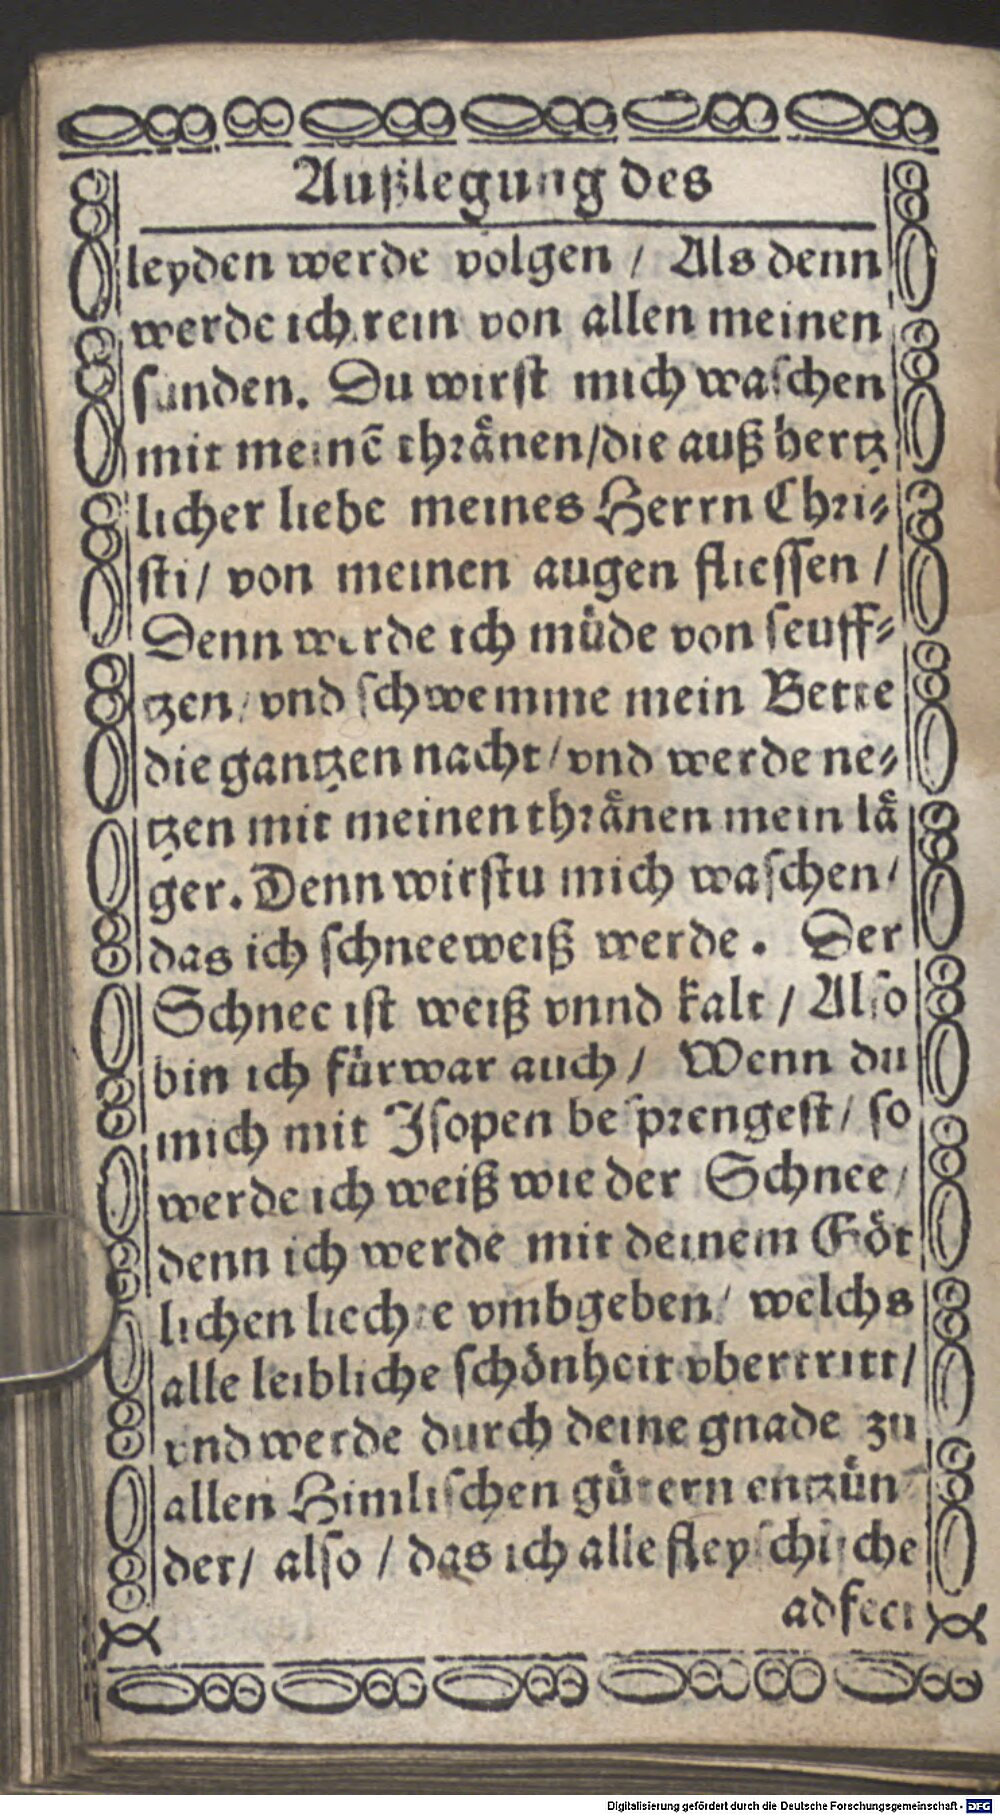 Außlegung des
leyden werde volgen / Als denn
werde ich rein von allen meinen
sunden. Du wirst mich waschen
mit meinē thrånen/die auß hertz
licher liebe meines Herrn Chri⸗
sti/ von meinen augen fliessen /
Denn werde ich můde von seuff⸗
tzen/ vnd schwemme mein Bette
die gantzen nacht/vnd werde ne⸗
tzen mit meinen thrånen mein lå
ger. Denn wirstu mich waschen/
das ich schneeweiß werde. Der
Schnee ist weiß vnnd kalt / Also
bin ich fůrwar auch / Wenn du
mich mit Jsopen besprengest/ so
werde ich weiß wie der Schnee/
denn ich werde mit deinem Gőt
lichen liechte vmbgeben/ welchs
alle leibliche schőnheit vbertritt/
vnd werde durch deine gnade zu
allen Himlischen gůtern entzůn
det/ also / das ich alle fleyschliche
adfect
Digitalisierung gefördert durch die Deutsche Forschungsgemeinschaft - DFG